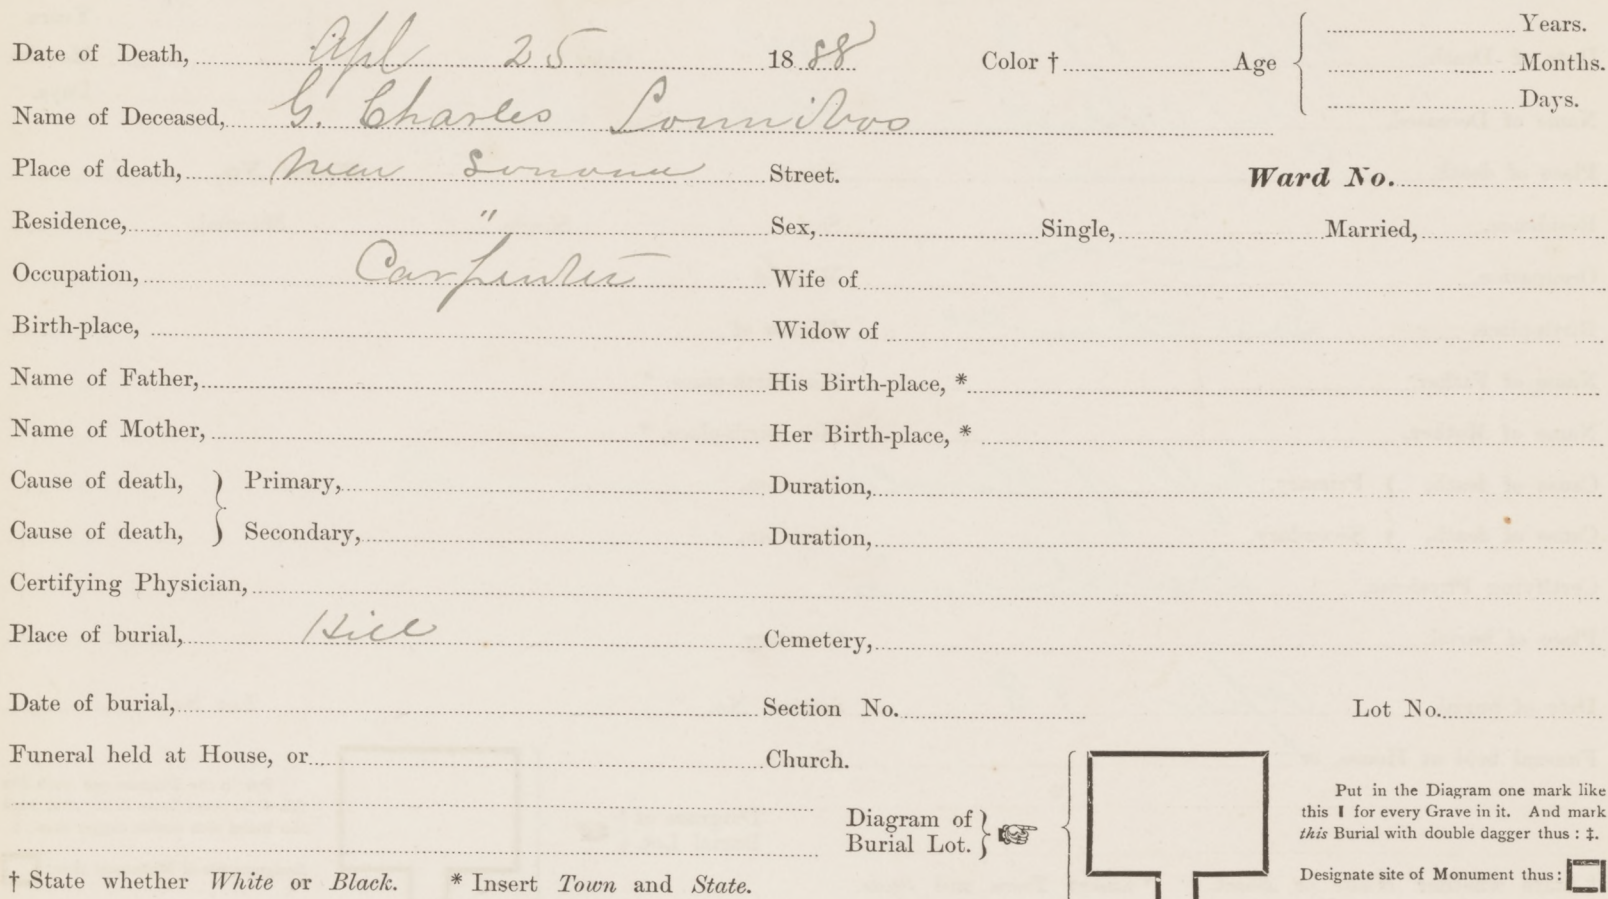 Date of Death, Apl 25 1888 Color † Age Years.
Months.
Days.
Name of Deceased, G. Charles Lounibos
Place of death, Near Sonoma Street. Ward No.
Residence, " Sex, Single, Married,
Occupation, Carpenter Wife of
Birth-place, Widow of
Name of Father, His Birth-place, *
Name of Mother, Her Birth-place, *
Cause of death, } Primary, Duration,
Cause of death, } Secondary, Duration,
Certifying Physician,
Place of burial, Hill Cemetery,
Date of burial, Section No. Lot No.
Funeral held at House, or Church.
Diagram of
Burial Lot.
Put in the Diagram one mark like
this I for every Grave in it. And mark
this Burial with double dagger thus : ‡.
Designate site of Monument thus :
† State whether White or Black. * Insert Town and State.